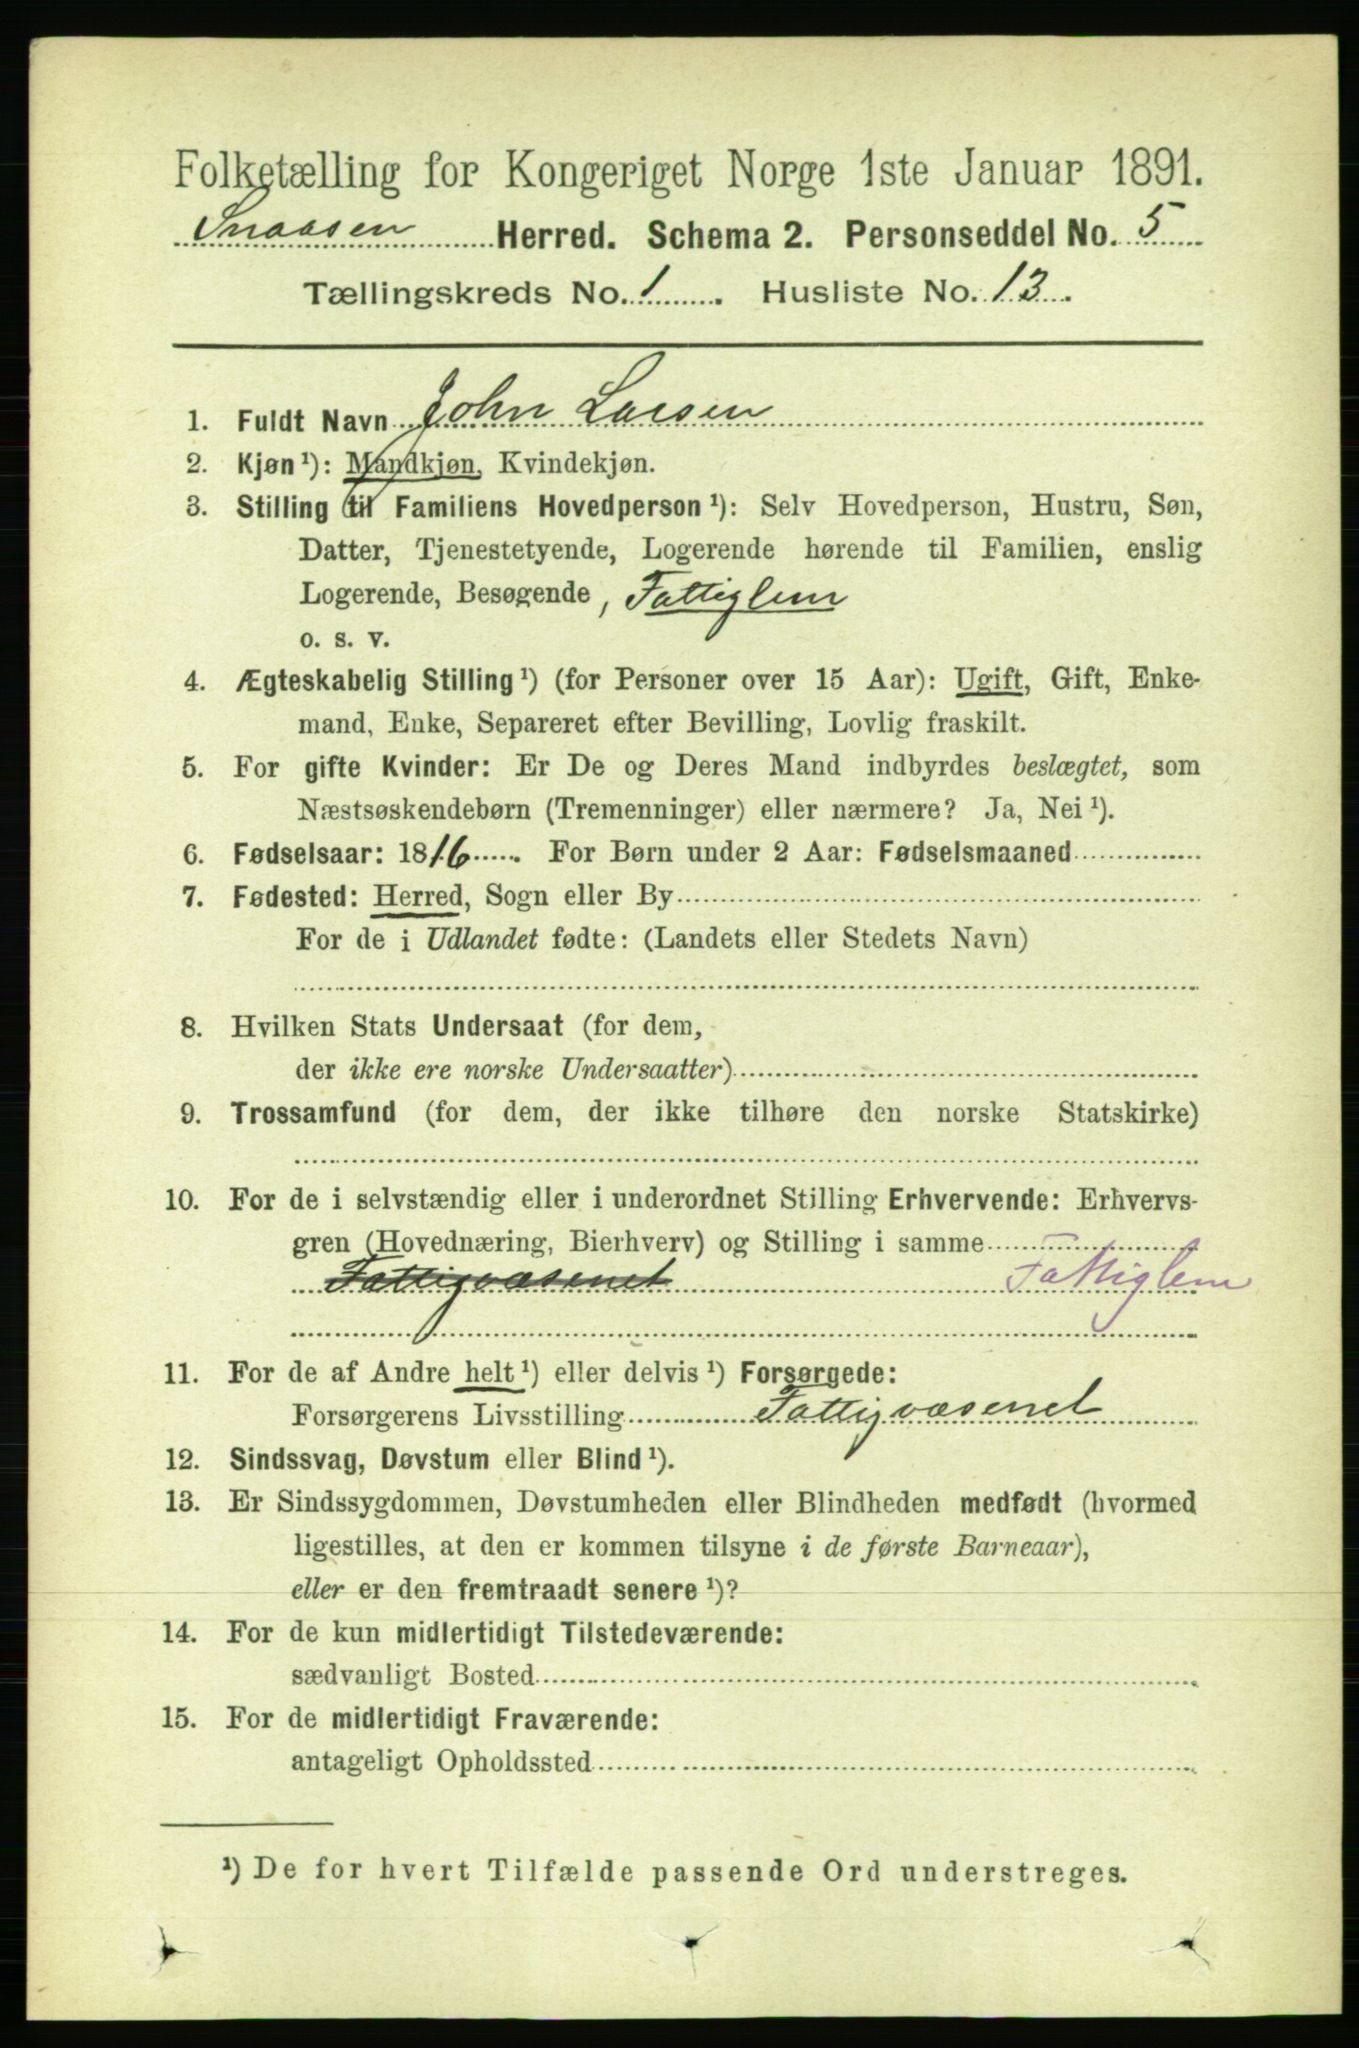 Folketælling for Kongeriget Norge 1ste Januar 1891.
Snaasen Herred. Schema 2. Personseddel No. 5
Tællingskreds No. 1. Husliste No. 13.
1. Fuldt Navn John Larsen
2. Kjøn¹): Mandkjøn, Kvindekjøn.
3. Stilling til Familiens Hovedperson¹): Selv Hovedperson, Hustru, Søn,
Datter, Tjenestetyende, Logerende hørende til Familien, enslig
Logerende, Besøgende, Fattiglem
o. s. v.
4. Ægteskabelig Stilling¹) (for Personer over 15 Aar): Ugift, Gift, Enke-
mand, Enke, Separeret efter Bevilling, Lovlig fraskilt.
5. For gifte Kvinder: Er De og Deres Mand indbyrdes beslægtet, som
Næstsøskendebørn (Tremenninger) eller nærmere? Ja, Nei¹).
6. Fødselsaar: 1816. For Børn under 2 Aar: Fødselsmaaned
7. Fødested: Herred, Sogn eller By
For de i Udlandet fødte: (Landets eller Stedets Navn)
8. Hvilken Stats Undersaat (for dem,
der ikke ere norske Undersaatter)
9. Trossamfund (for dem, der ikke tilhøre den norske Statskirke)
10. For de i selvstændig eller i underordnet Stilling Erhvervende: Erhvervs-
gren (Hovednæring, Bierhverv) og Stilling i samme
Fattigvæsenet Fattiglem
11. For de af Andre helt¹) eller delvis¹) Forsørgede:
Forsørgerens Livsstilling Fattigvæsenet
12. Sindssvag, Døvstum eller Blind¹).
13. Er Sindssygdommen, Døvstumheden eller Blindheden medfødt (hvormed
ligestilles, at den er kommen tilsyne i de første Barneaar),
eller er den fremtraadt senere¹)?
14. For de kun midlertidigt Tilstedeværende:
sædvanligt Bosted
15. For de midlertidigt Fraværende:
antageligt Opholdssted
¹) De for hvert Tilfælde passende Ord understreges.